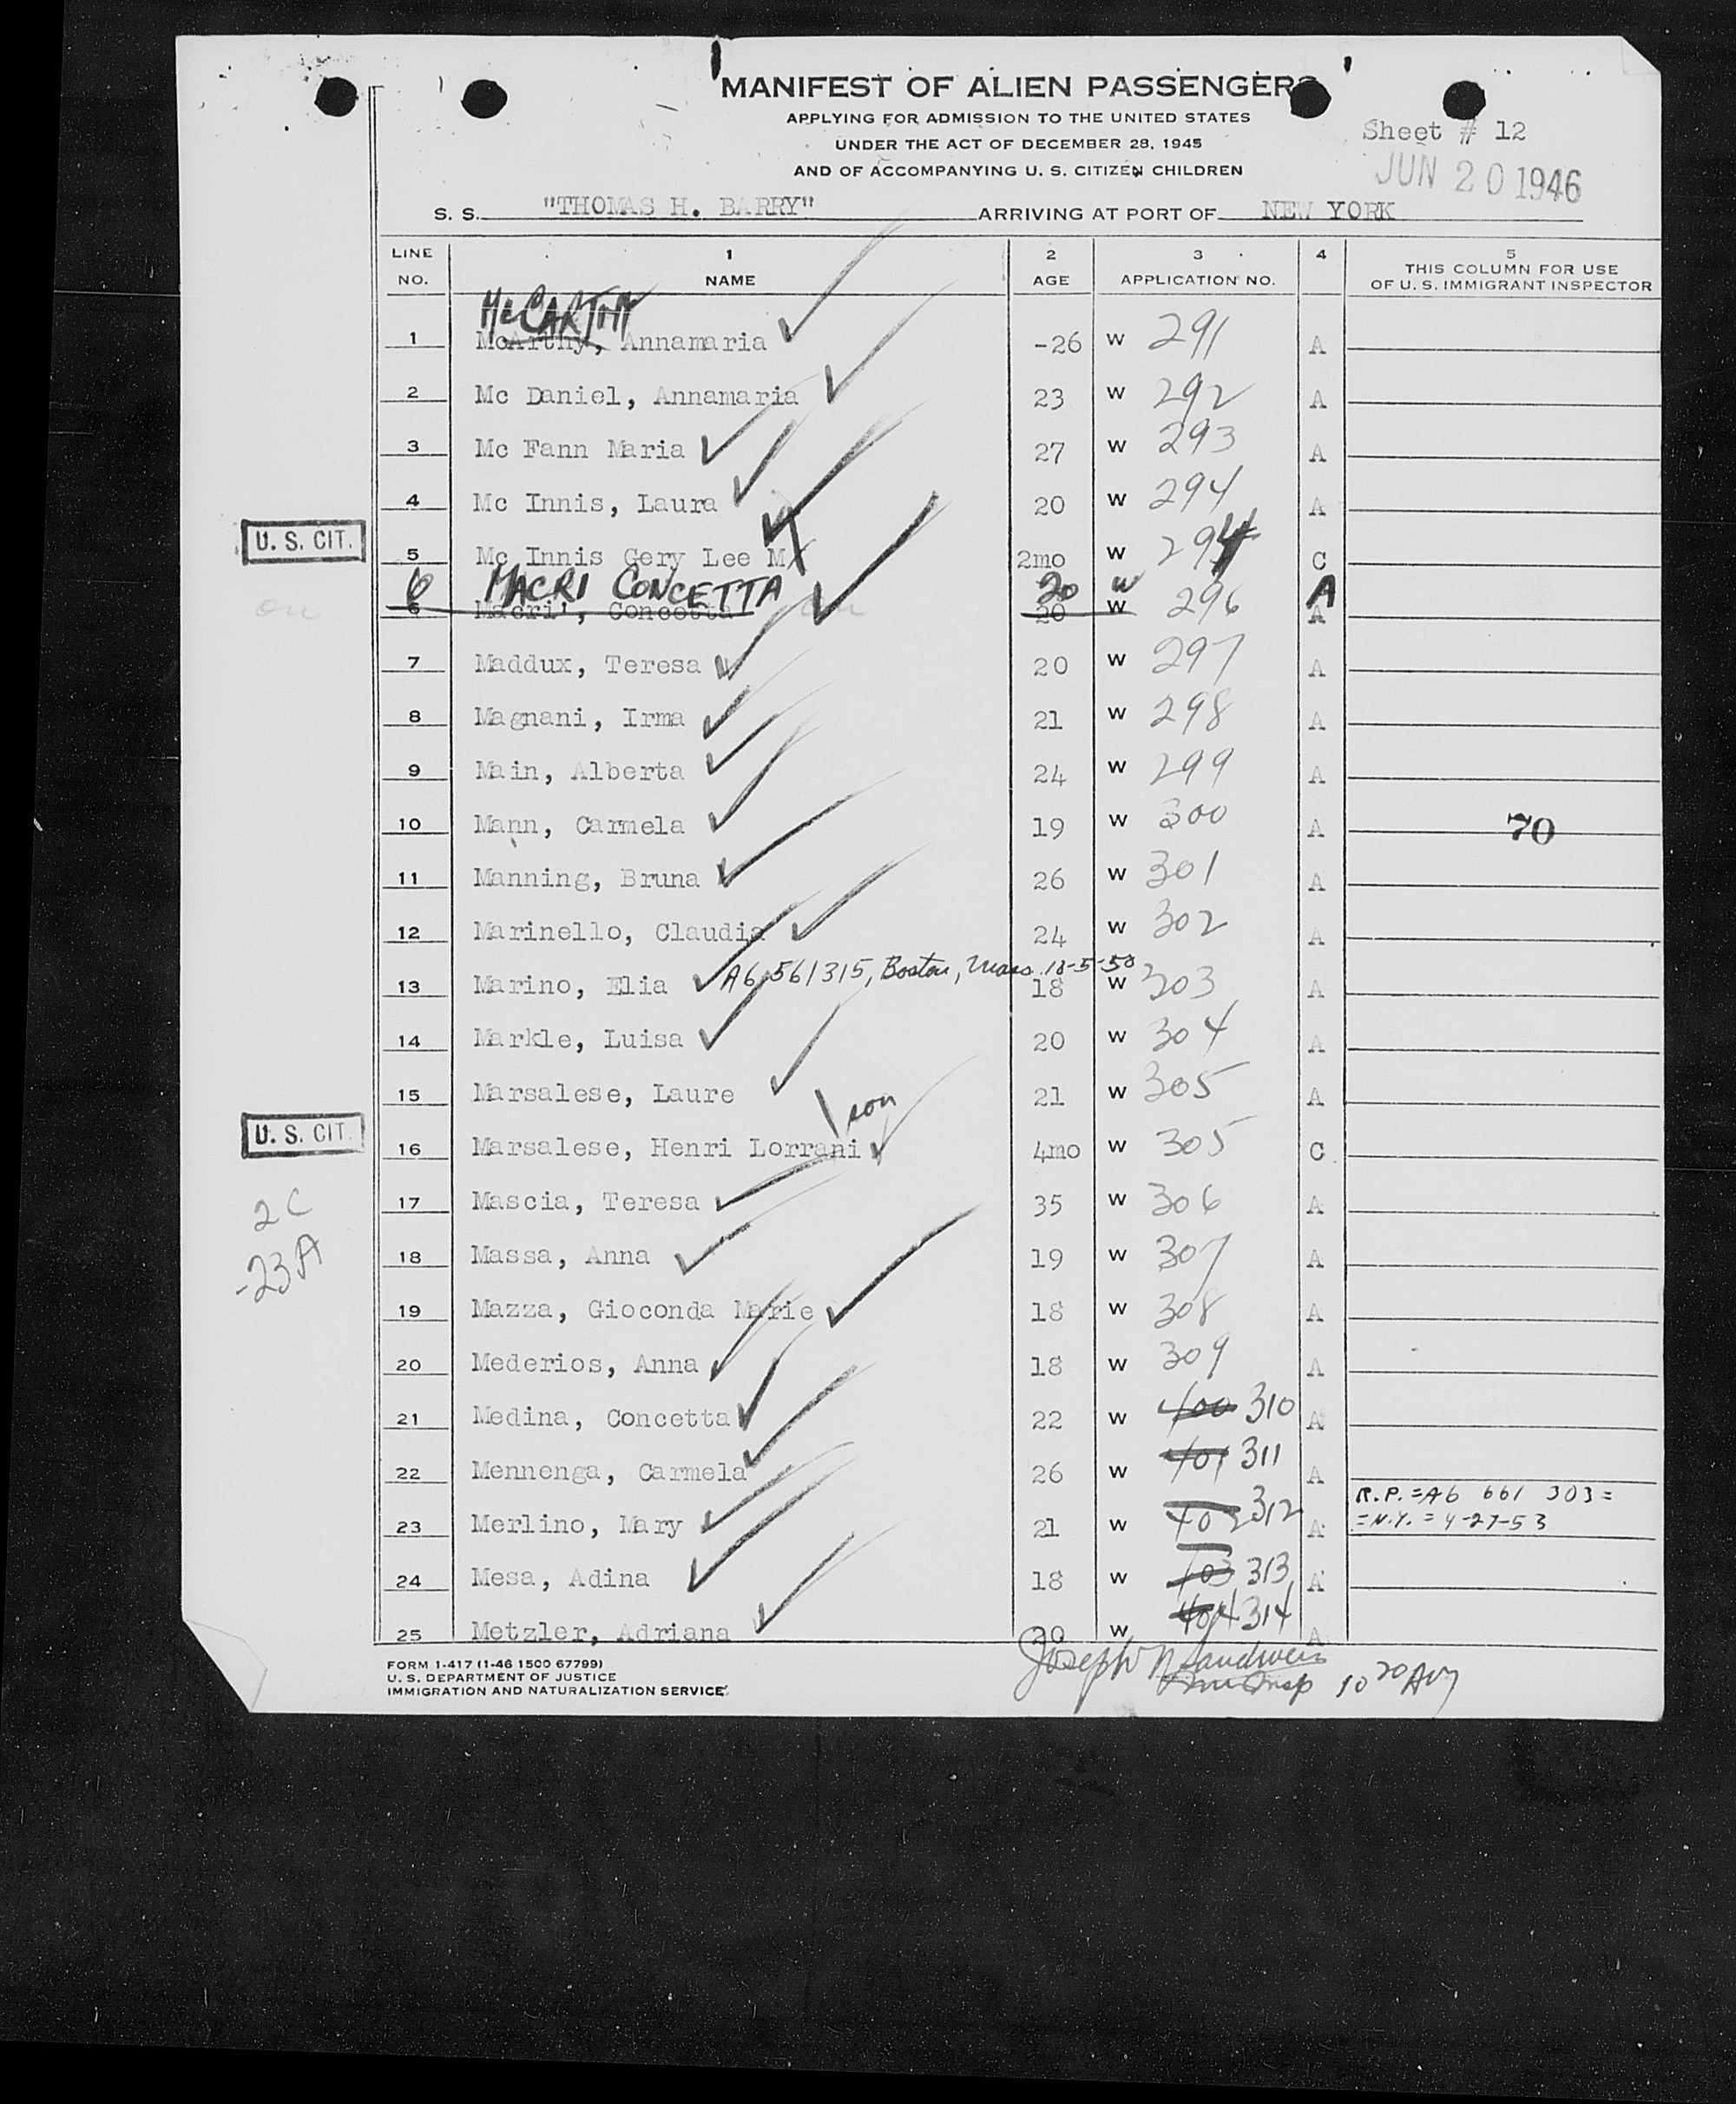 MANIFEST OF ALIEN PASSENGERS
APPLYING FOR ADMISSION TO THE UNITED STATES
UNDER THE ACT OF DECEMBER 28, 1945
AND OF ACCOMPANYING U. S. CITIZEN CHILDREN
Sheet # 12
JUN 20 1946
S. S. "THOMAS H. BARRY" ARRIVING AT PORT OF NEW YORK
LINE NO. 1 NAME 2 AGE 3 APPLICATION NO. 4 5 THIS COLUMN FOR USE OF U. S. IMMIGRANT INSPECTOR
McCARTHY
1 McArthy, Annamaria -26 W 291 A
2 Mc Daniel, Annamaria 23 W 292 A
3 Mc Fann Maria 27 W 293 A
4 Mc Innis, Laura 20 W 294 A
U. S. CIT. 5 Mc Innis Gery Lee M 2mo W 294 C
6 MACRI CONCETTA 20 W A
6 Macri', Concetta 20 W 296 A
7 Maddux, Teresa 20 W 297 A
8 Magnani, Irma 21 W 298 A
9 Main, Alberta 24 W 299 A
10 Mann, Carmela 19 W 300 A 70
11 Manning, Bruna 26 W 301 A
12 Marinello, Claudia 24 W 302 A
A6 561315, Boston, Mass. 10-5-50
13 Marino, Elia 18 W 303 A
14 Markle, Luisa 20 W 304 A
15 Marsalese, Laure 21 W 305 A
son
U. S. CIT. 16 Marsalese, Henri Lorrani 4mo W 305 C
17 Mascia, Teresa 35 W 306 A
2C
18 Massa, Anna 19 W 307 A
-23A
19 Mazza, Gioconda Marie 18 W 308 A
20 Mederios, Anna 18 W 309 A
21 Medina, Concetta 22 W 400 310 A
22 Mennenga, Carmela 26 W 401 311 A
R.P.=A6 661 303=
23 Merlino, Mary 21 W 402 312 A =N.Y.=4-27-53
24 Mesa, Adina 18 W 403 313 A
25 Metzler, Adriana 20 W 404 314 A
FORM I-417 (1-46 1500 67799)
U. S. DEPARTMENT OF JUSTICE
IMMIGRATION AND NATURALIZATION SERVICE
Joseph N Sandwein
Imm Insp 10 20